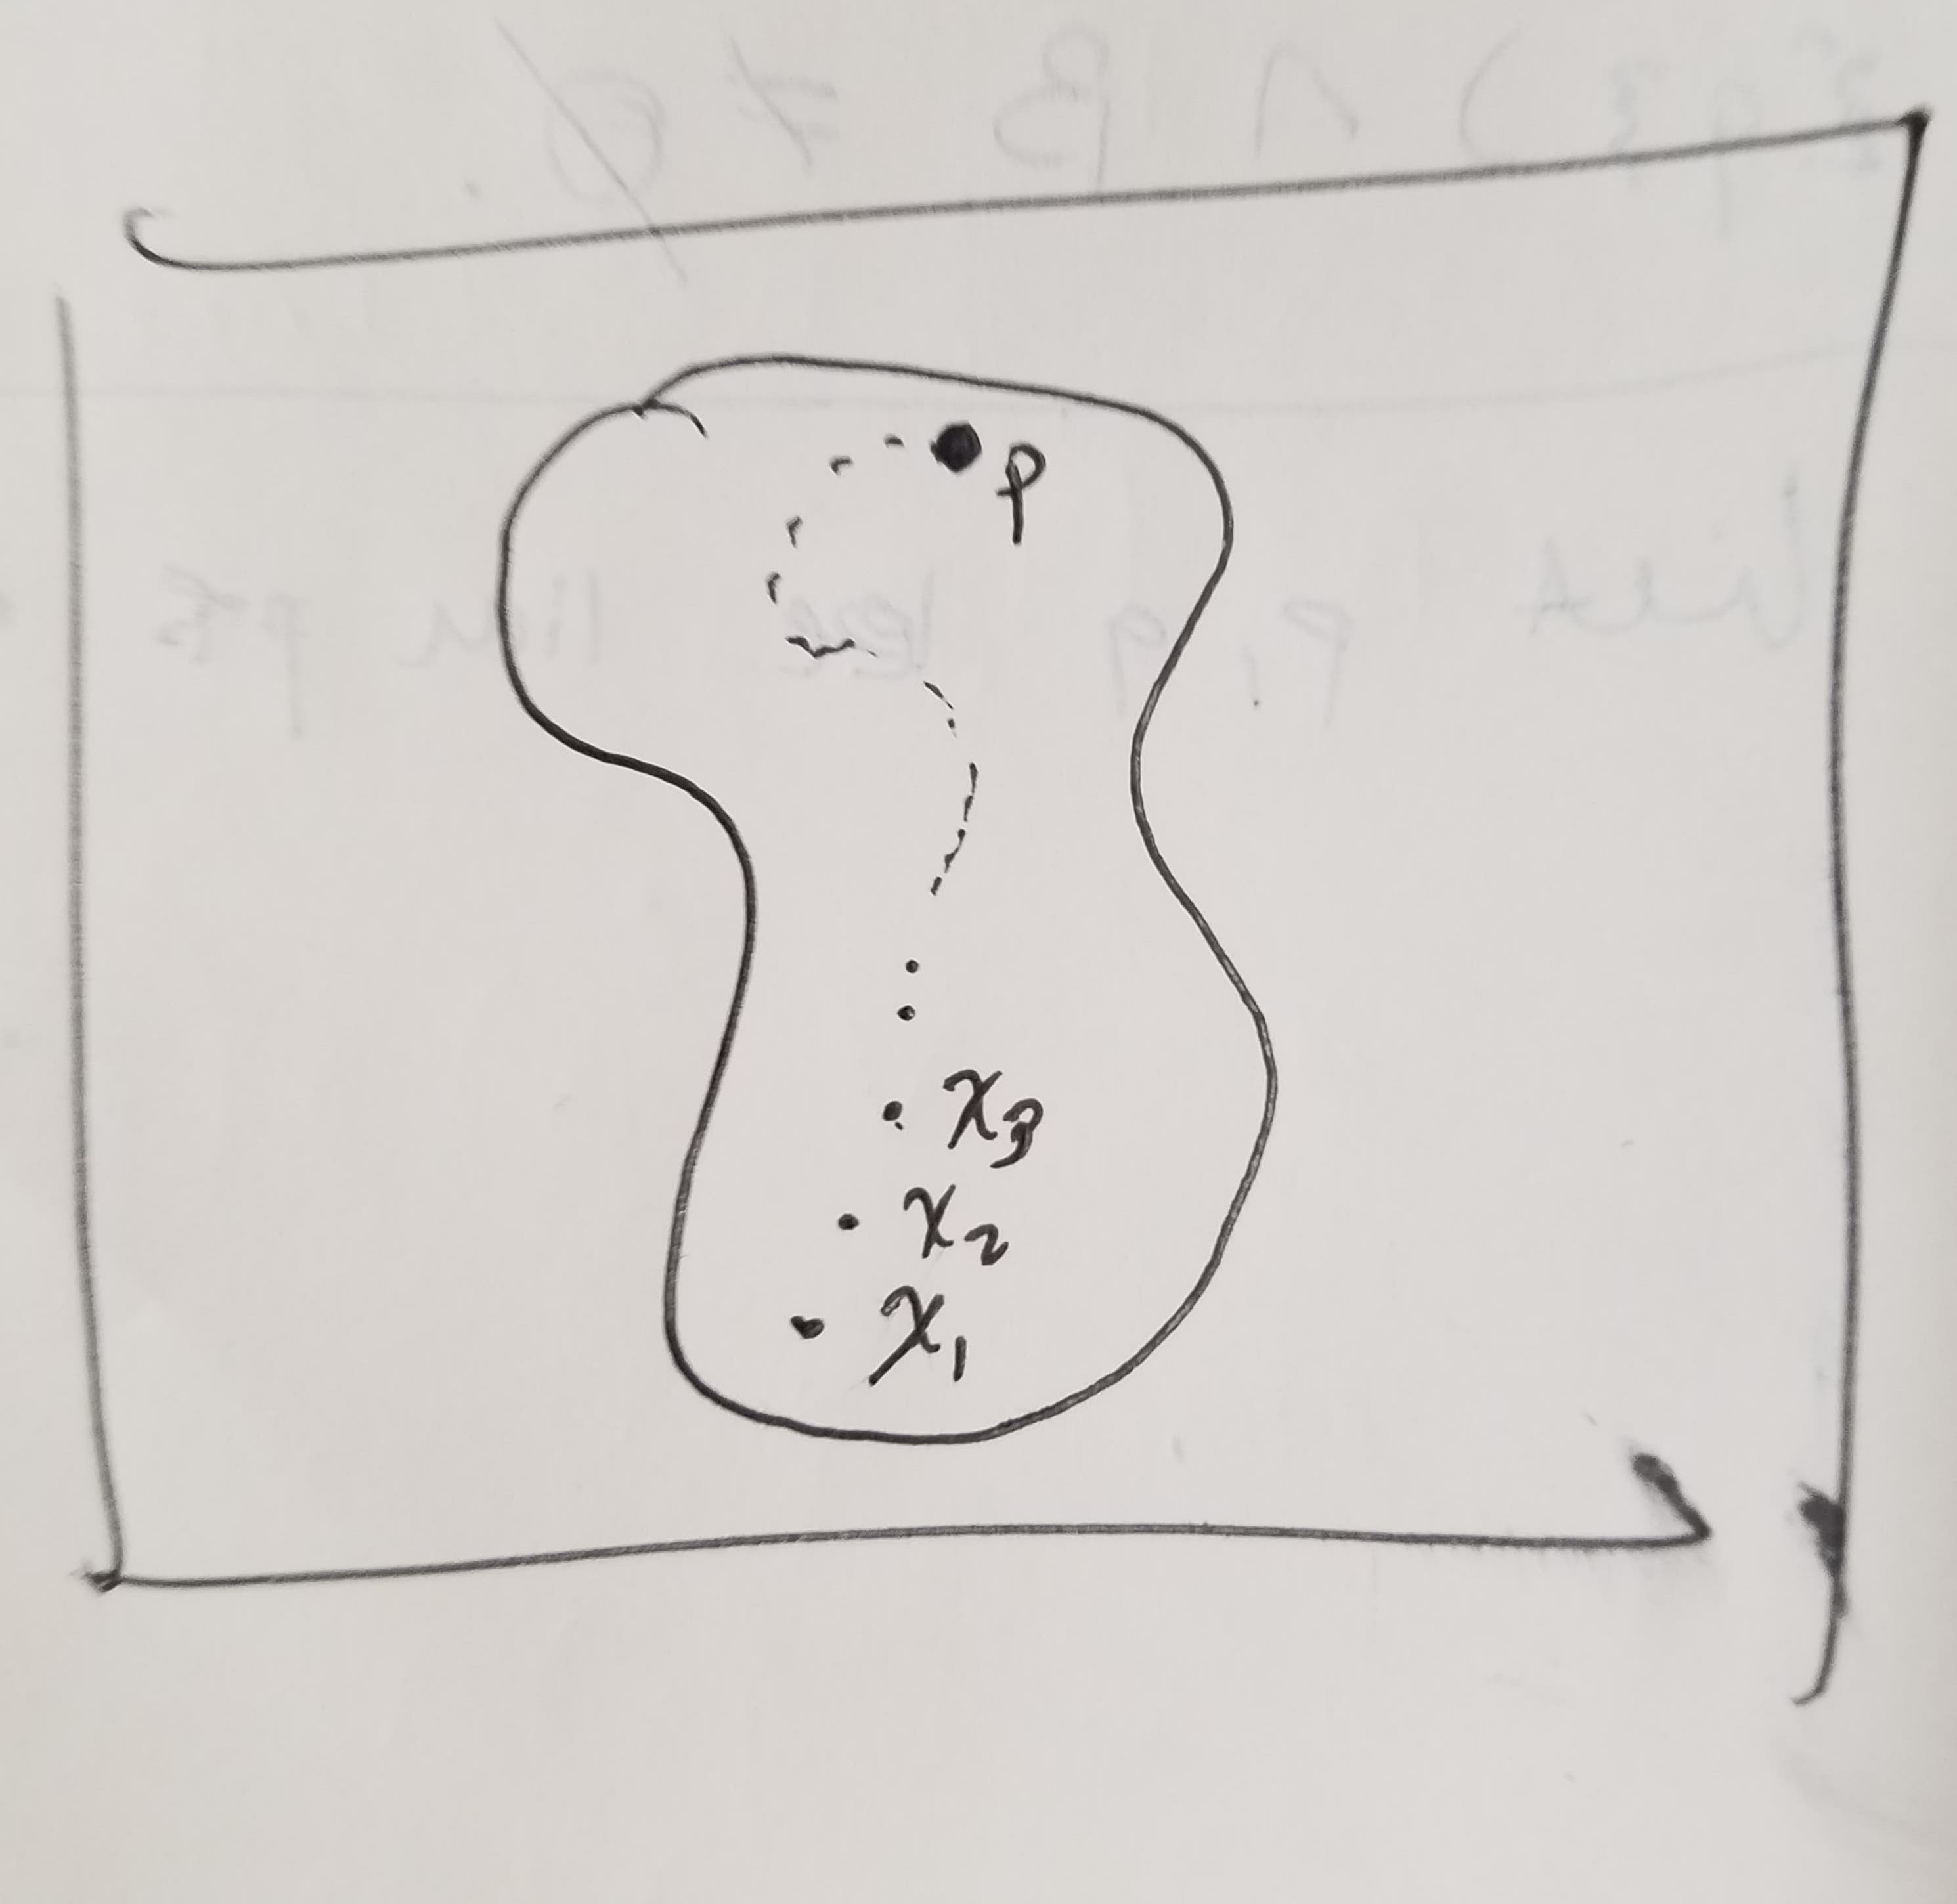 p
x₃
x₂
x₁